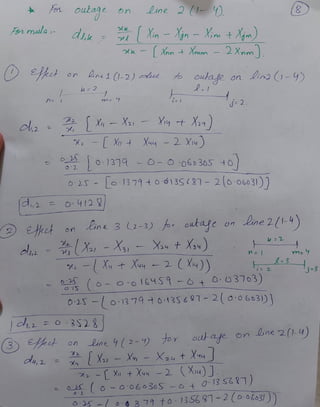 * For outage on line 2 (1-4)
8
Formula:- d_l,k = x_k/x_l [X_in - X_jn - X_im + X_jm] / x_k - [X_nn + X_mm - 2X_nm]
① Effect on line 1 (1-2) due to outage on line 2 (1-4)
k=2 n=1 m=4
l=1 i=1 j=2
d_1,2 = x_2/x_1 [X_11 - X_21 - X_14 + X_24] / x_2 - [X_11 + X_44 - 2X_14]
= 0.25/0.2 [0.1379 - 0 - 0.060365 + 0] / 0.25 - [0.1379 + 0.135687 - 2(0.06031)]
d_1,2 = 0.4128
② Effect on line 3 (2-3) for outage on line 2 (1-4)
k=2 n=1 m=4
l=3 i=2 j=3
= x_2 [X_21 - X_31 - X_24 + X_34] / x_2 - [X_11 + X_44 - 2(X_14)]
= 0.25/0.15 (0 - 0.016459 - 0 + 0.03703) / 0.25 - (0.1379 + 0.135687 - 2(0.06031))
= 0.3528
③ Effect on line 4 (2-4) for outage on line 2 (1-4)
d_4,2 = [X_21 - X_41 - X_24 + X_44] / x_2 - [X_11 + X_44 - 2(X_14)]
= (0 - 0.060365 - 0 + 0.135687)
0.25 - (0.1379 + 0.135687 - 2(0.06031))